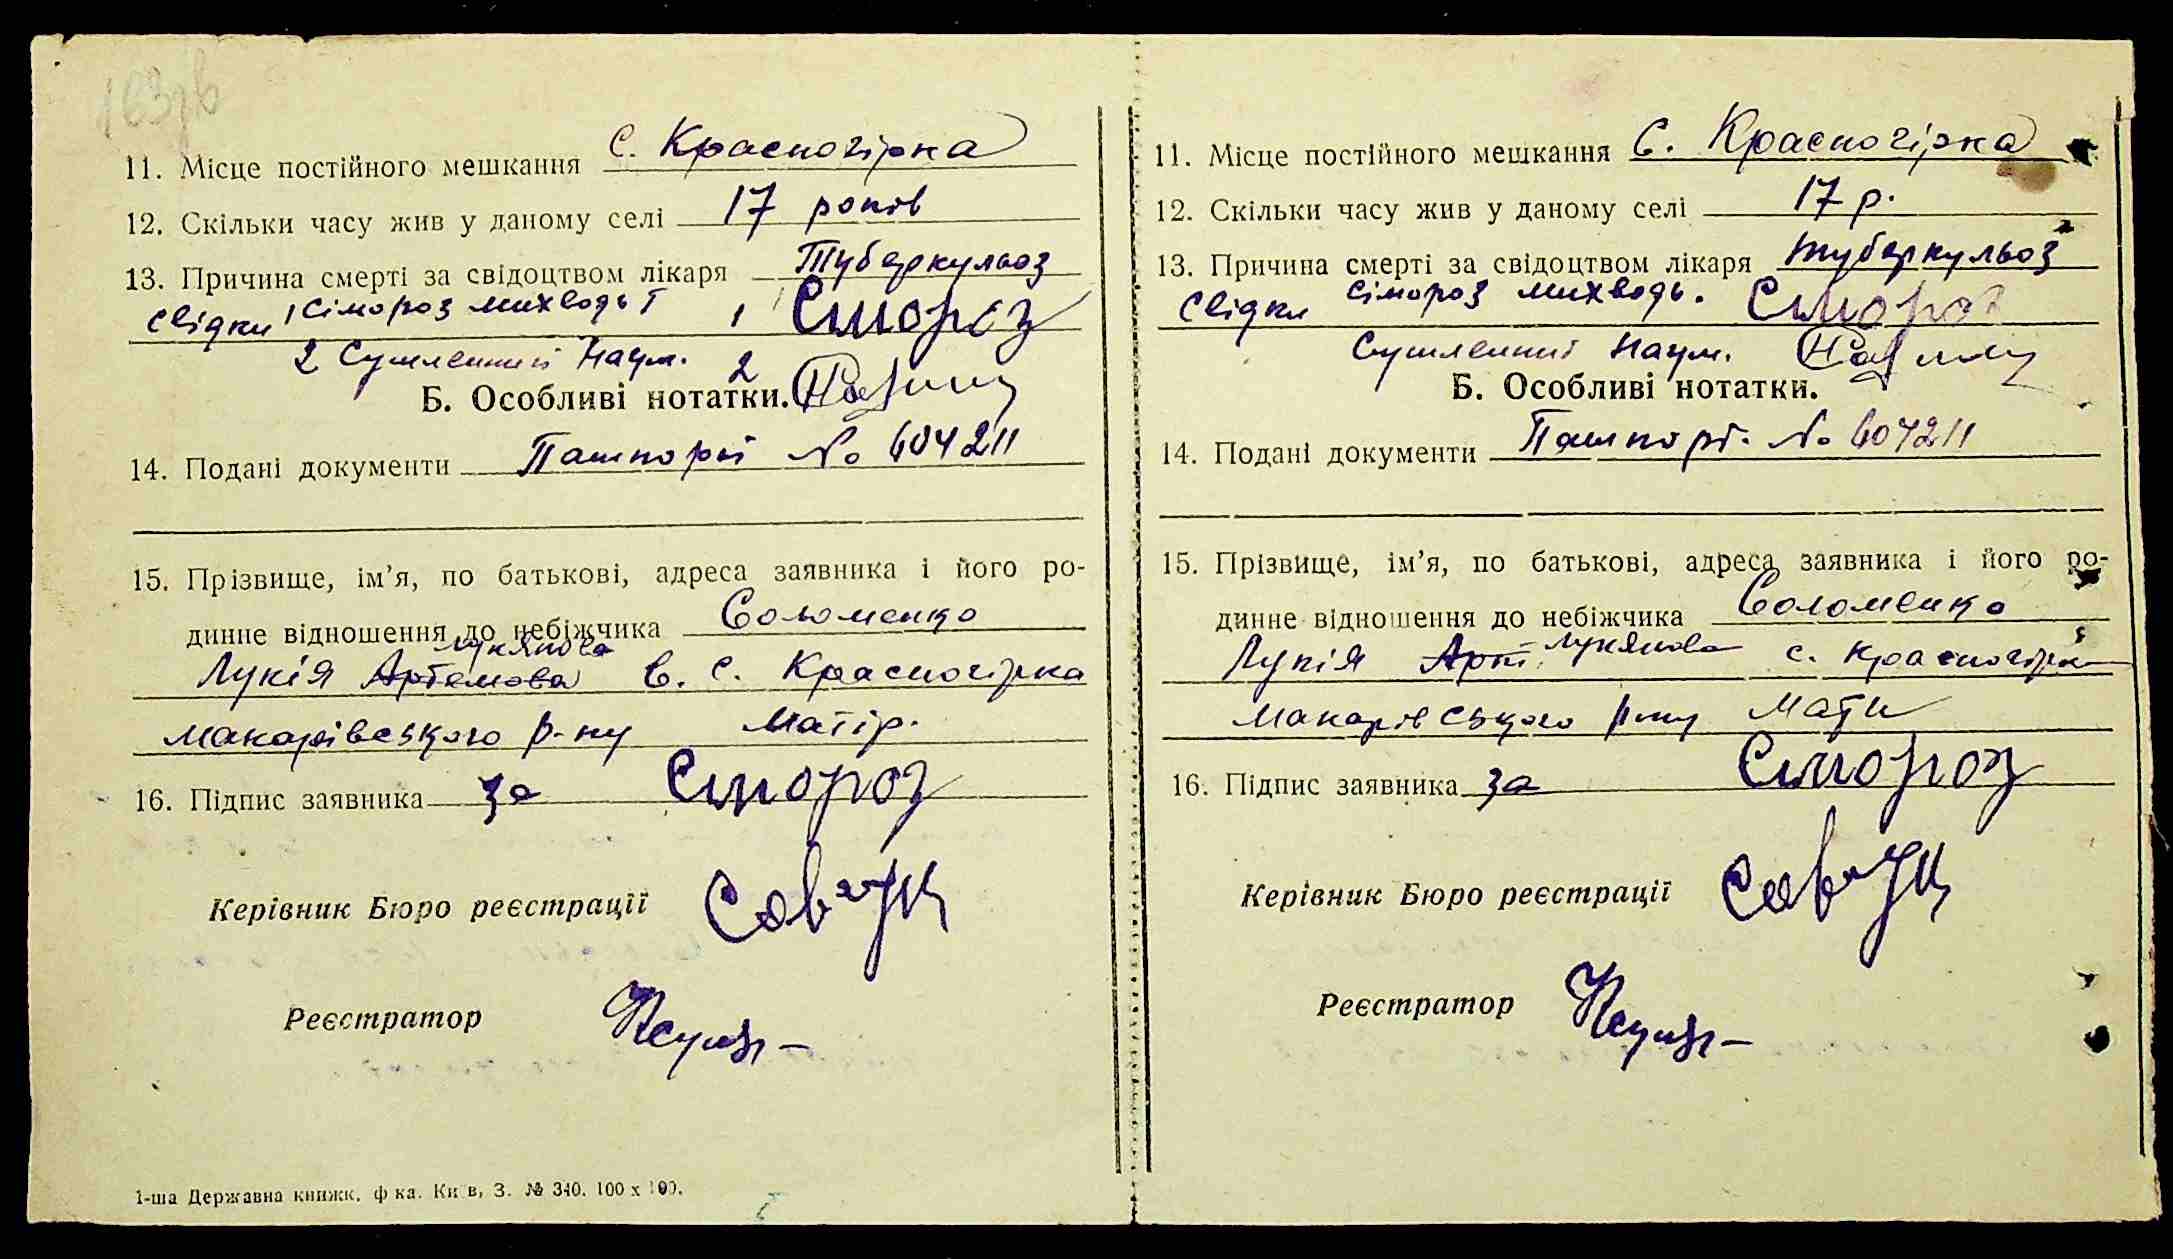 11. Місце постійного мешкання с. Красногірка
12. Скільки часу жив у даному селі 17 років
13. Причина смерті за свідоцтвом лікаря Туберкульоз
свідки 1 Сімороз 1 Сімороз
2 Наум. 2
Б. Особливі нотатки.
14. Подані документи Пашпорт № 604211
15. Прізвище, ім’я, по батькові, адреса заявника і його ро-
динне відношення до небіжчика Соломенко
Лукянова
Лукія Артемова в. с. Красногірка
макарівського р-ну Матір.
16. Підпис заявника за Сімороз
Керівник Бюро реєстрації
Реєстратор
1-ша Державна книжк. ф ка. Київ, З. № 340. 100 х 100.
11. Місце постійного мешкання с. Красногірка
12. Скільки часу жив у даному селі 17 р.
13. Причина смерті за свідоцтвом лікаря туберкульоз
свідки Сімороз Сімороз
Наум.
Б. Особливі нотатки.
14. Подані документи Пашпорт. № 604211
15. Прізвище, ім’я, по батькові, адреса заявника і його ро-
динне відношення до небіжчика Соломенко
Лукія Арт. Лукянова с. Красногірка
макарівського р-ну Мати
16. Підпис заявника за Сімороз
Керівник Бюро реєстрації
Реєстратор